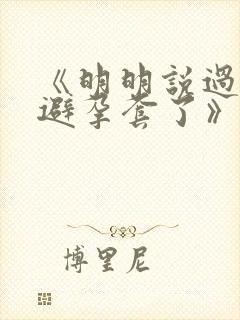 《明明說過
避孕套了》
博里尼